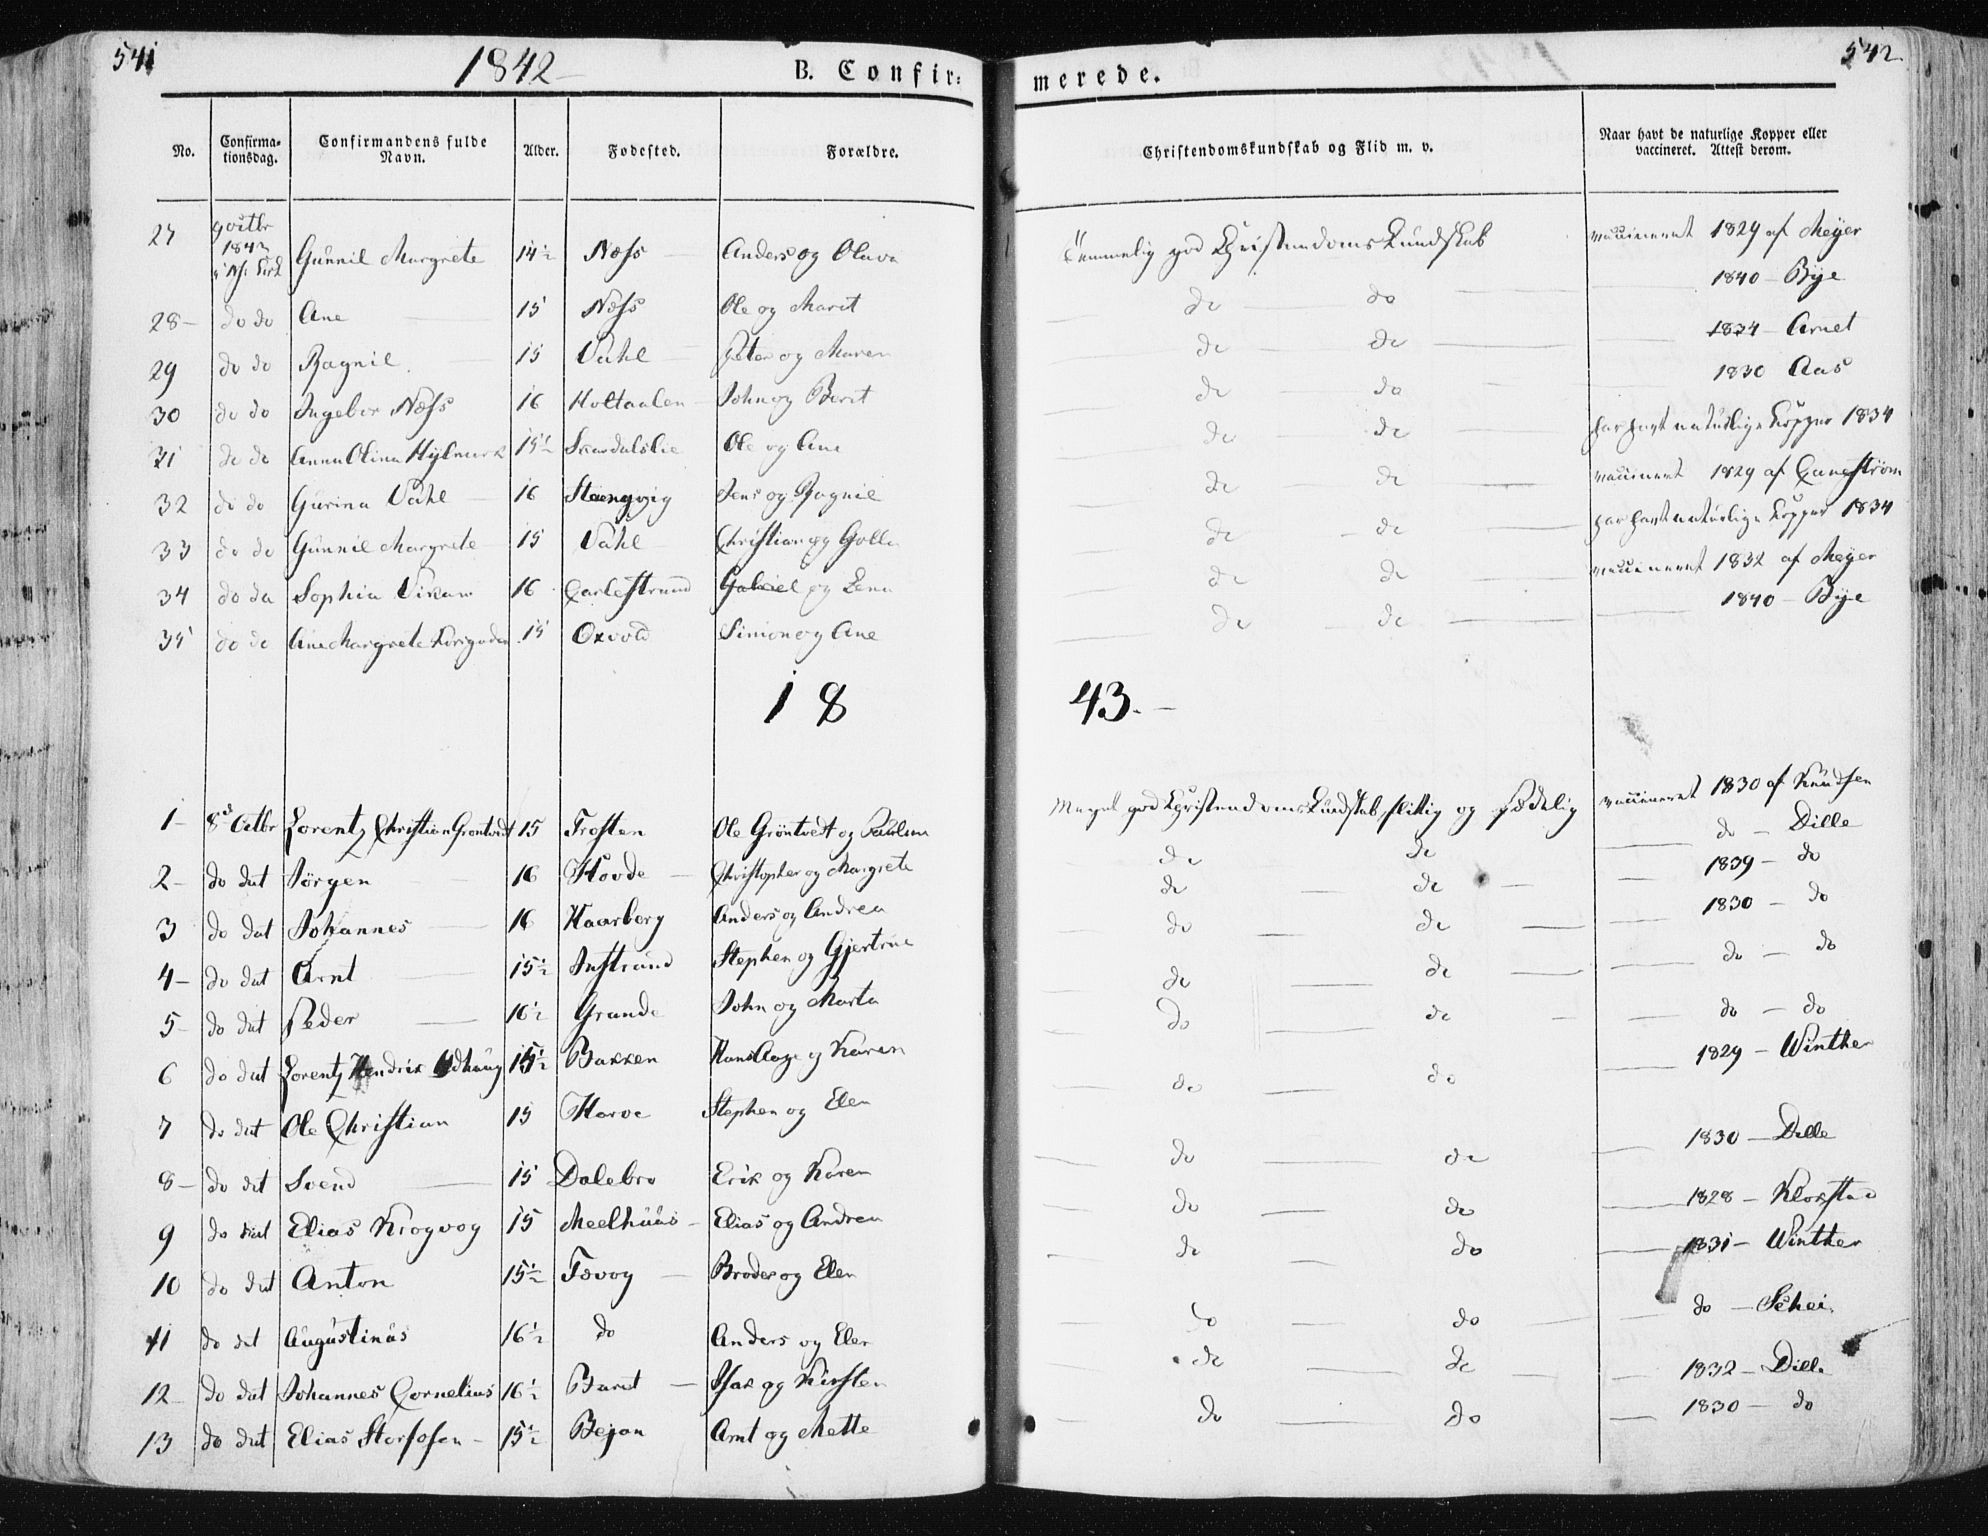 541
1842
B. Confir=
merede.
542
No.
Confirma-
tionsdag.
Confirmandens fulde
Navn.
Alder.
Fødested.
Forældre.
Christendomskundskab og Flid m. v.
Naar havt de naturlige Kopper eller
vaccineret. Attest derom.
27 9 Octbr 1842 Gunnil Margrete 14½ Næss Anders og Olava Temmelig god Christendoms Kundskab vaccineret 1829 af Meyer
28 do do Ane 15 Næss Ole og Marit do do 1840 - Bye
29 do do Ragnil 15 Vahl Peter og Maren do do 1834 - Arnet
30 do do Ingebor Næss 16 Holtaalen John og Berit do do 1830 Aas
31 do do Anna Olina Hylmark 15½ Skardalslie Ole og Ane do do har havt naturlige Kopper 1834
32 do do Gurina Vahl 16 Stengvig Jens og Ragnil do do vaccineret 1829 af
33 do do Gunnil Margrete 15 Vahl Christian og Golla do do har havt naturlige Kopper 1834
34 do do Sophia Vikan 16 Carlestrand Gabriel og Lena do do vaccineret 1832 af Meyer
35 do do Ane Margrete 15 Oxvold Simon og Ane do do 1840 - Bye
18 43.-
1- 8de Octbr Lorentz Christian Grøntvedt 15 Trosten Ole Grøntvedt og Meget god Christendoms Kundskab, flittig og sædelig vaccineret 1830 af Knudsen
2- do dat Jørgen 16 Hovde Christopher og Margrete do do do - Dille
3 do dat Johannes 16 Haarberg Anders og Andrea do do 1839 - do
4- do dat Arnt 15½ Instrand Stephen og Gjertrue do do 1830 - do
5- do dat Peder 16½ Grande John og Marta do do do - do
6 do dat Lorentz Hendrik Udhaug 15½ Bakken Hans Aage og Karen do do do - do
7 do dat Ole Christian 15 Harve Stephen og Elen do do 1829 - Winther
8- do dat Svend 15 Dalebro Erik og Karen do do 1830 - Dille
9 do dat Elias Krogvog 15 Meelhuus Elias og Andrea do do 1828 - Klokstad
10 do dat Anton 15½ Tævog Broder og Elen do do 1831 - Winther
11 do dat Augustinus 16½ do Anders og Elen do do do - Schei.
12 do dat Johannes Cornelius 16½ Baret Isak og Kirsten do do 1832 - Dille
13 do dat Elias Storfosen 15½ Bejan Arnt og Mette do do 1830 - do